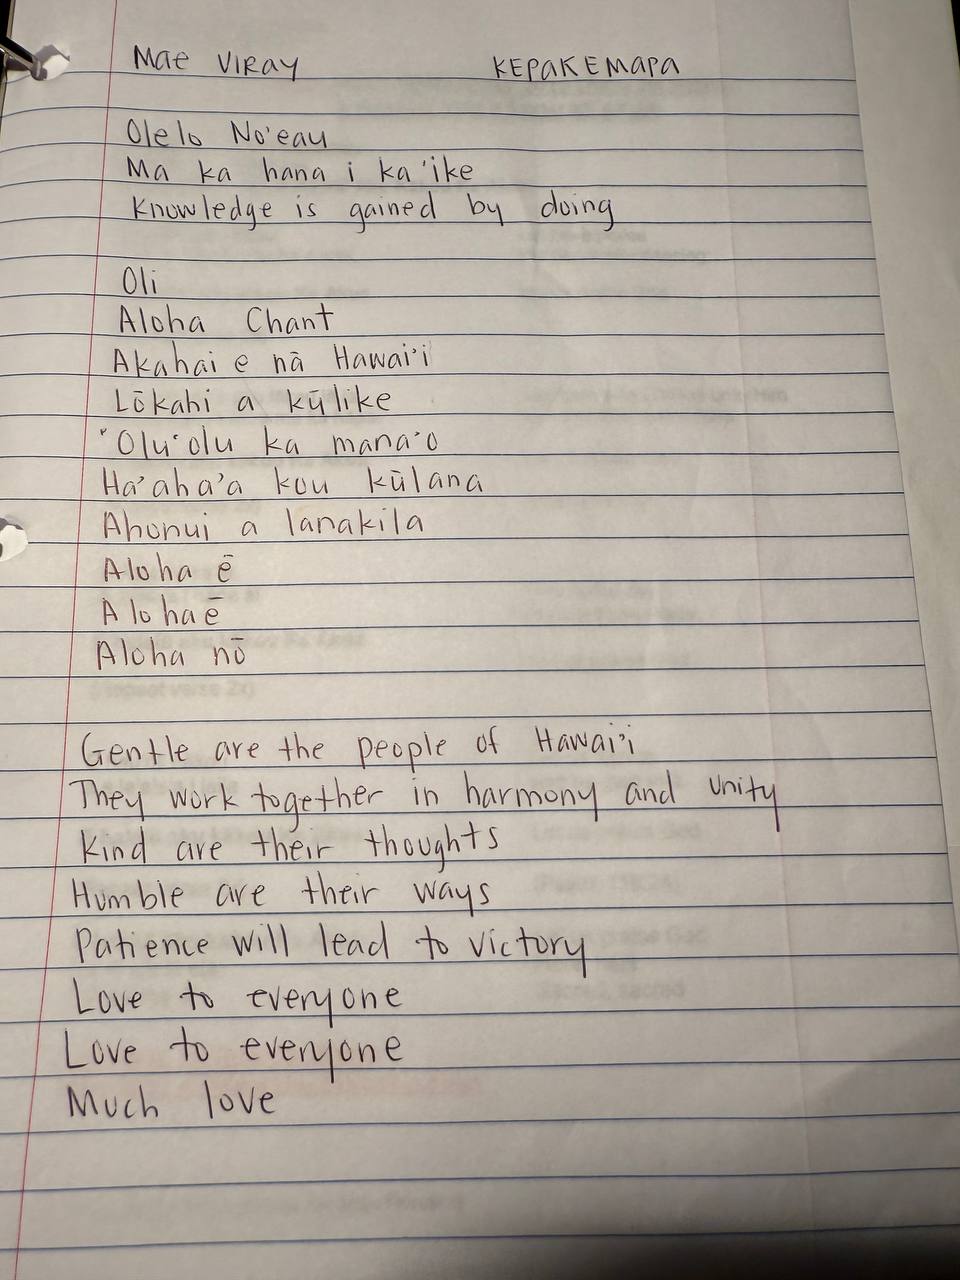 Mae VIRAY KEPAKEMAPA
Olelo No'eau
Ma ka hana i ka 'ike
Knowledge is gained by doing
Oli
Aloha Chant
Akahai e nā Hawai'i
Lōkahi a kūlike
'Olu'olu ka mana'o
Ha'aha'a kou kūlana
Ahonui a lanakila
Aloha ē
Aloha ē
Aloha nō
Gentle are the people of Hawai'i
They work together in harmony and unity
Kind are their thoughts
Humble are their ways
Patience will lead to victory
Love to everyone
Love to everyone
Much love